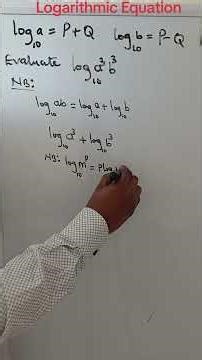 Logarithmic Equation
log₁₀a = P+Q log₁₀b = P-Q
Evaluate log₁₀a³b³
NB:
log₁₀ab = log₁₀a + log₁₀b
log₁₀a³ + log₁₀b³
NB: log₁₀mᵖ = Plog